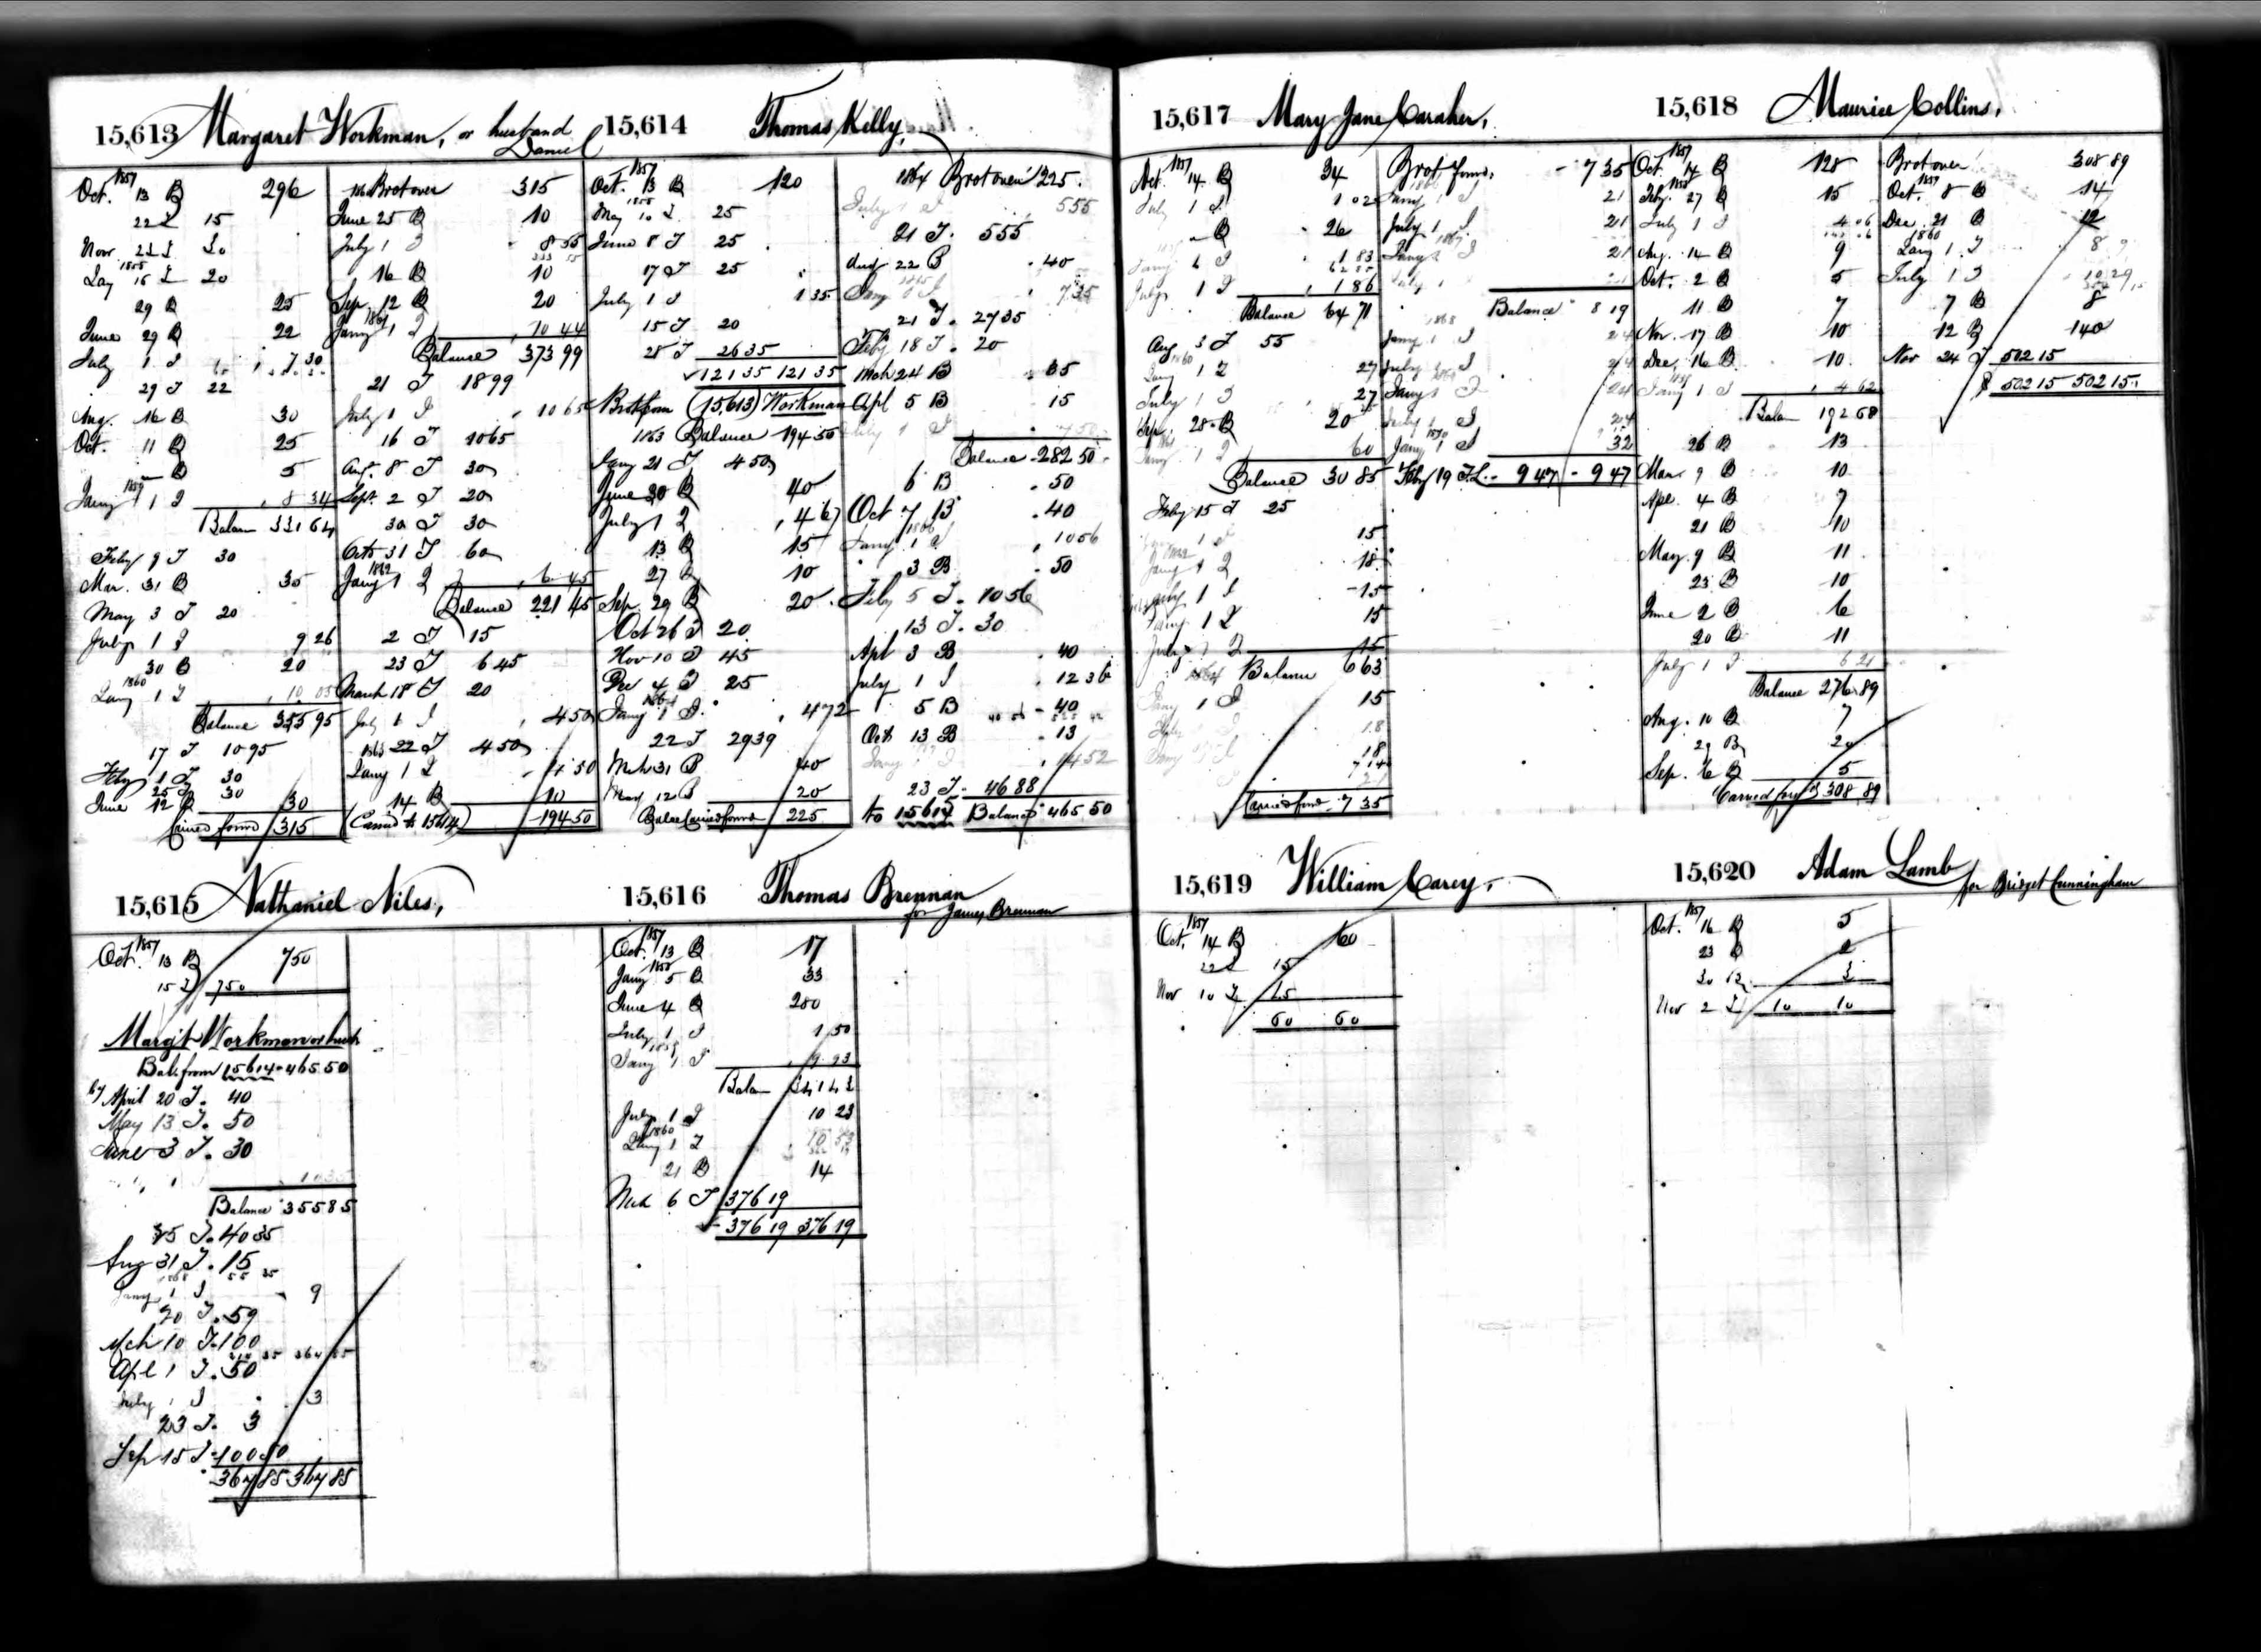 15,613 Margaret Workman, or husband Daniel
1857
Oct. 13 B 296
22 I 15
Nov. 21 I 20
1858
29 B 25
June 29 B 22
July 1 I 7 30
29 I 22
Aug. 16 B 30
Oct. 11 B 25
" B 5
1859
Jany 1 I 8 34
Balan 331 64
Feby 9 I 30
Mar. 31 B 35
May 3 I 20
July 1 I 9 26
30 B 20
1860
Jany 1 I 10 05
Balance 355 95
17 I 10 95
Feby 1 I 30
25 I 30
June 12 B 30
Carried forwd 315
Brot over 315
June 25 B 10
July 1 I 8 55
16 B 10
Sep. 12 B 20
1861
Jany 1 I 10 44
Balance 373 99
21 I 18 99
July 1 I 10 65
16 I 10 65
Aug. 8 I 30
Sept. 2 I 20
30 I 30
Oct 31 I 60
1862
Jany 1 I 6 45
Balance 221 45
2 I 15
23 I 6 45
March 18 I 20
July 1 I 4 50
22 I 4 50
1863
Jany 1 I 4 50
14 B 10
(Carried to 15614) 194 50
15,614 Thomas Kelly,
1857
Oct. 13 B 120
1858
May 10 I 25
June 8 I 25
17 I 25
July 1 I 1 35
15 I 20
28 I 26 35
121 35 121 35
Brot from (15,613) Workman
1863 Balance 194 50
Jany 21 I 4 50
June 30 B 40
July 1 I 4 67
13 B 15
27 B 10
Sep. 29 B 20
Oct 26 I 20
Nov 10 I 45
Dec 4 I 25
1864
Jany 1 I 4 72
22 I 29 39
Mch 31 B 40
May 12 B 20
Balce Carried forwd 225
1864 Brot over 225
July 1 I 5 55
21 I. 5 55
Aug 22 B 40
1865
Jany 1 I 7 35
21 I. 27 35
Feby 18 I. 20
Mch 24 B 35
Apl 5 B 15
July 1 I 7 50
Balance 282 50
6 B 50
Oct 7 B 40
1866
Jany 1 I 10 56
3 B 50
Feby 5 I. 10 56
13 I. 30
Apl 3 B 40
July 1 I 12 36
5 B 40
Oct 13 B 13
Jany 1 I 14 52
23 I. 46 88
to 15615 Balance 465 50
15,615 Nathaniel Niles,
1857
Oct. 13 B 750
15 I 750
Margt Workman or husb
Bal from 15614 465 50
67 April 20 I. 40
May 13 I. 50
June 3 I. 30
Balance 355 85
25 I. 40 35
Aug 31 I. 15
1868
Jany 1 I 9
20 I. 59
Mch 10 I. 100
Apl 1 I. 50
July 1 I 3
23 I. 3
Sep 15 I. 100 50
367 85 367 85
15,616 Thomas Brennan
for James Brennan
1857
Oct. 13 B 17
1858
Jany 5 B 33
June 4 B 280
July 1 I 1 50
1859
Jany 1 I 9 93
Balan 341 43
July 1 I 10 23
1860
Jany 1 I 10 53
21 B 14
Mch 6 I 376 19
376 19 376 19
15,617 Mary Jane Caraher,
1857
Oct. 14 B 34
July 1 I 1 02
" B 26
Jany 1 I 1 83
July 1 I 1 86
Balance 64 71
Aug 3 I 55
1860
Jany 1 I 27
July 1 I 27
Sep. 28 B 20
Jany 1 I 60
Balance 30 85
Feby 15 I 25
July 1 I 15
Jany 1 I 18
July 1 I 15
Jany 1 I 15
July 1 I 15
1864 Balance 6 63
Jany 1 I 15
18
18
Carried forwd 7 35
Brot forwd, 7 35
Jany 1 I 21
July 1 I 21
1867
Jany 1 I 21
July 1
Balance 8 19
1868
Jany 1 I 24
July 1 I 24
Jany 1 I 24
July 1 I 24
1870
Jany 1 I 32
Feby 19 I. 9 47 9 47
15,618 Maurice Collins,
1857
Oct. 14 B 128
1858
Feby. 27 B 15
July 1 I 4 06
Aug. 14 B 9
Oct. 2 B 5
11 B 7
Nov. 17 B 10
Dec. 16 B 10
1859
Jany 1 I 4 62
Balan 192 68
26 B 13
Mar. 9 B 10
Apl. 4 B 7
21 B 10
May. 9 B 11
23 B 10
June 2 B 6
20 B 11
July 1 I 6 21
Balance 276 89
Aug. 10 B 7
29 B 20
Sep. 6 B 5
Carried forwd 308 89
Brot over 308 89
1859
Oct. 8 B 14
Dec. 21 B 12
1860
Jany 1 I
July 1 I 10 29
7 B 8
12 B 140
Nov 24 I 502 15
$ 502 15 502 15
15,619 William Carey,
1857
Oct. 14 B 60
22 I 15
Nov 10 I
60 60
15,620 Adam Lamb
for Bridget Cunningham
1857
Oct. 16 B 5
23 B 2
30 B 3
Nov 2 I 10 10